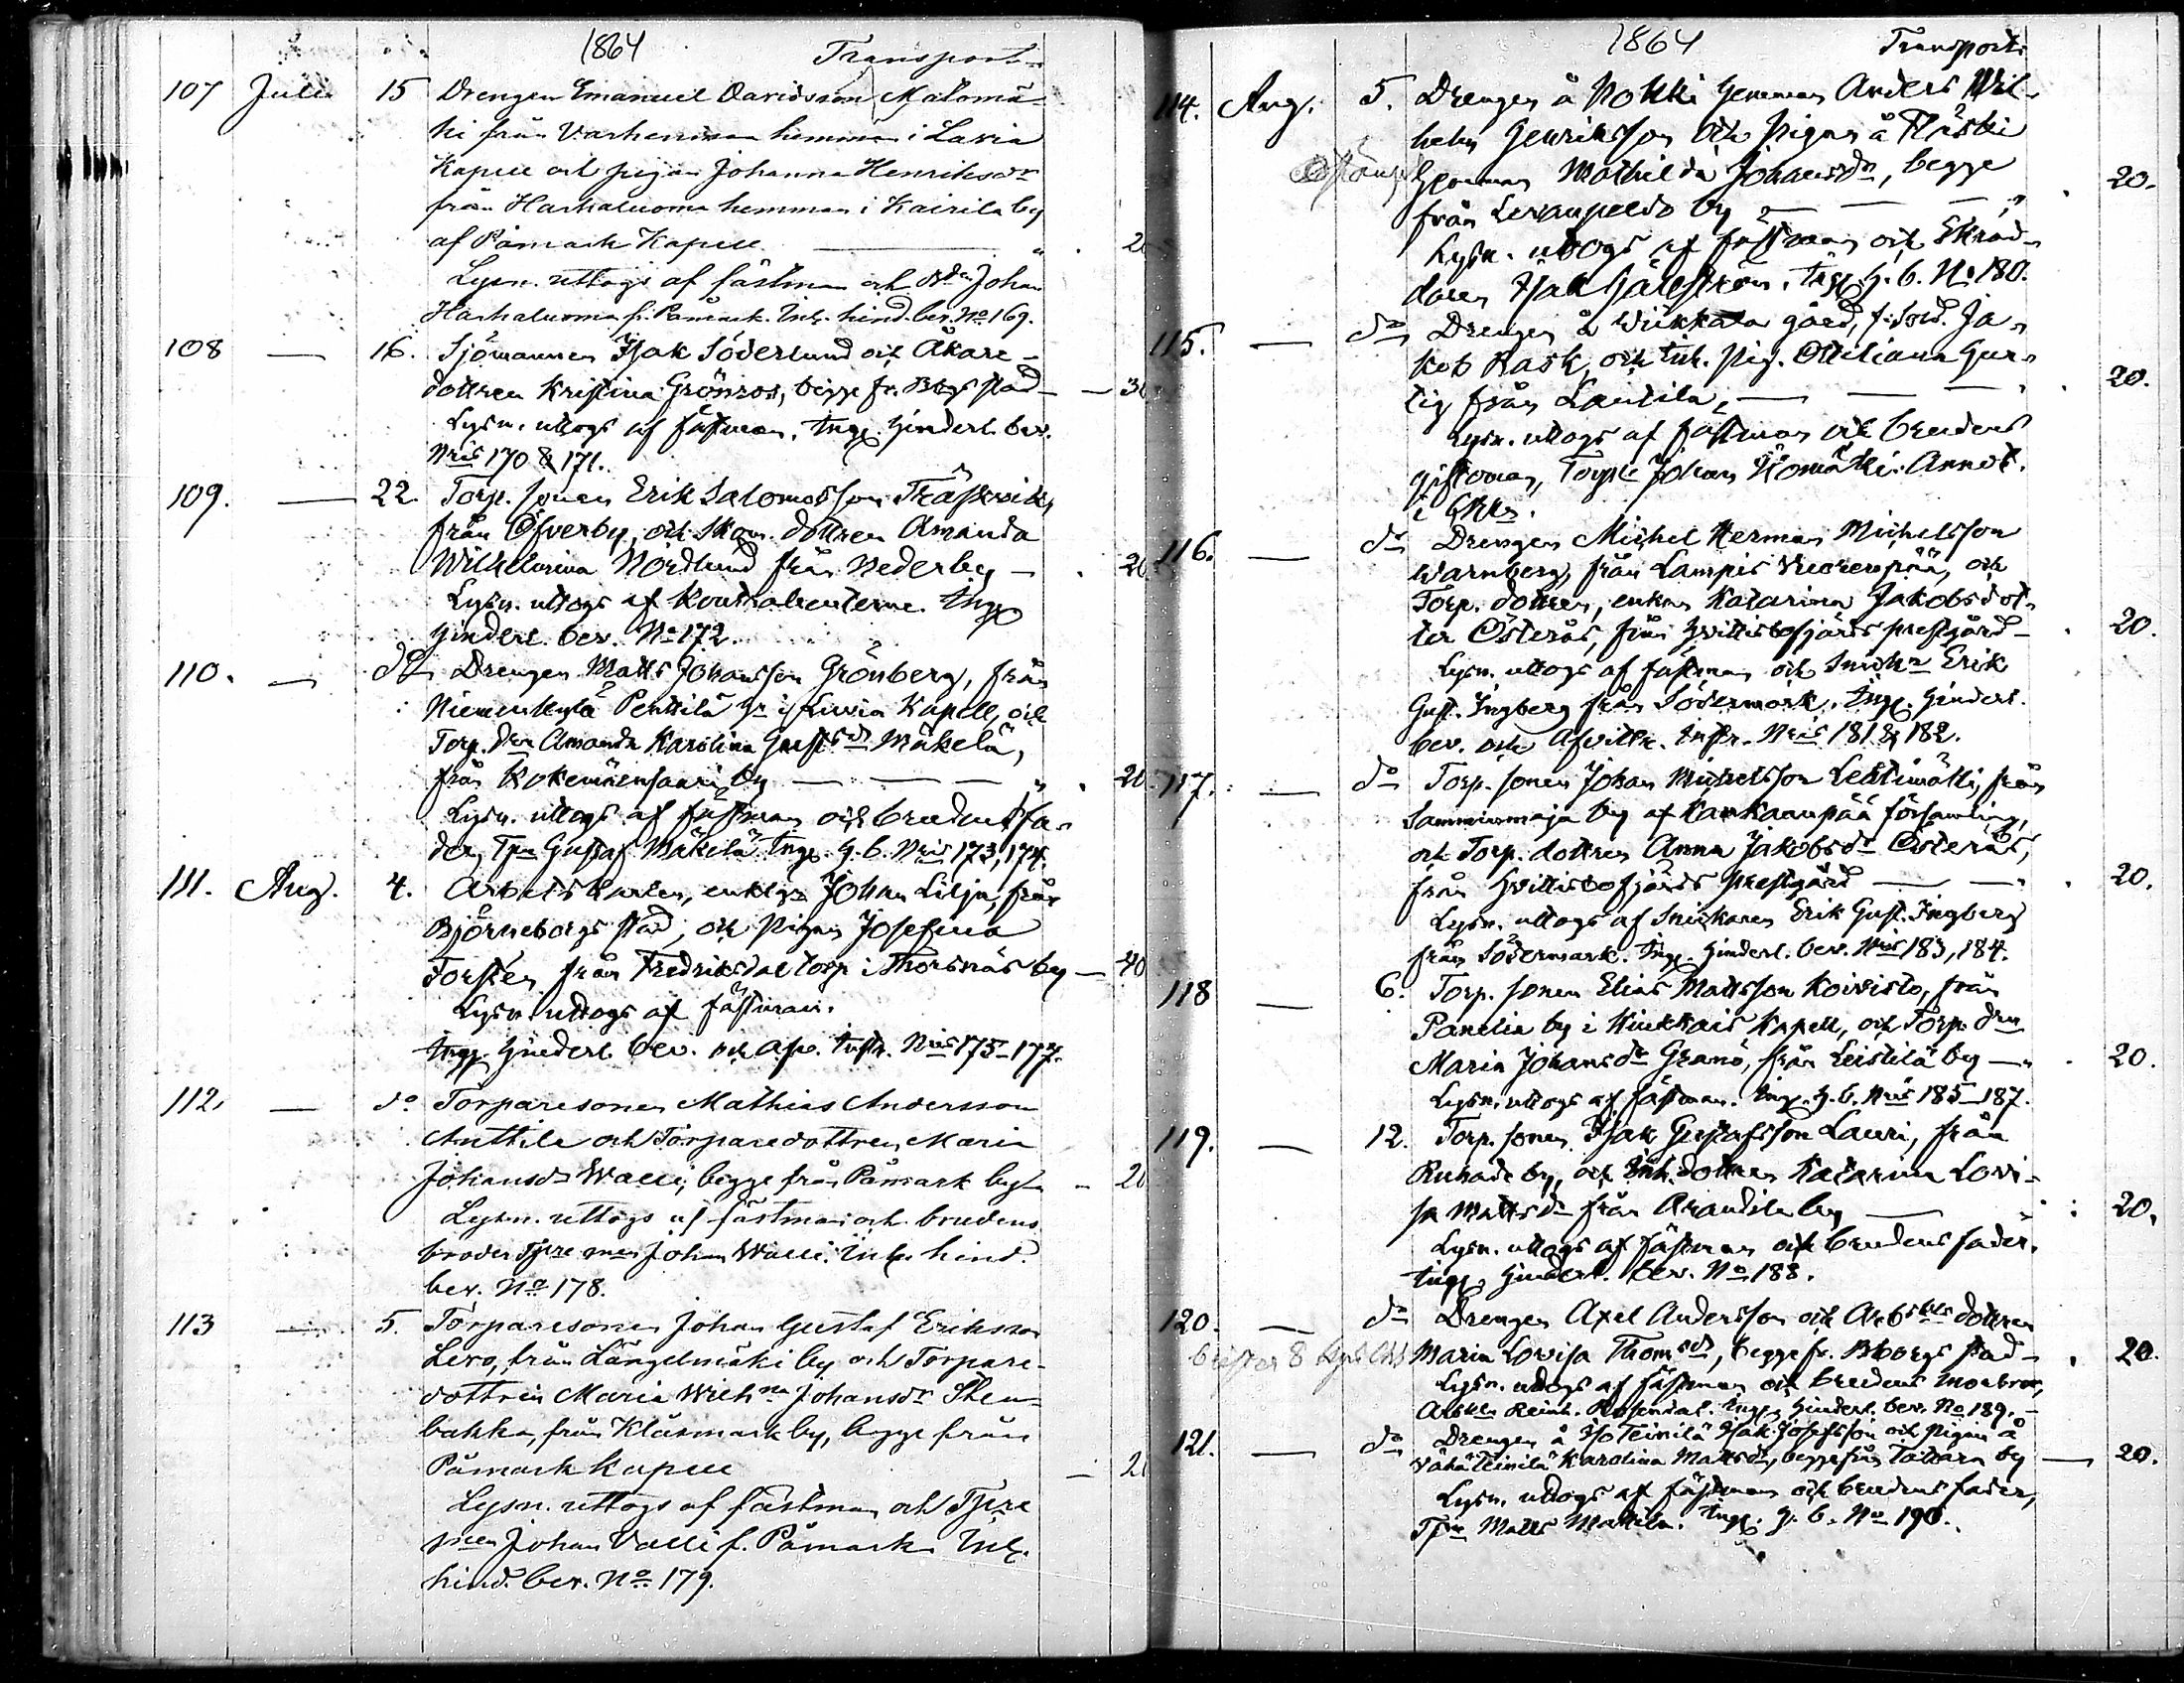 1864 Transport
107 Julii 15 Drengen Emanuel Davidsson Matomä-
ki från Varhenmaa hemman i Lavia
Kapell och pigan Johanna Henriksdr
från Harhaluoma hemman i Kairila by
af Påmark Kapell — " . 20
Lysn. uttogs af fästman och Johan
Harhaluoma fr. Påmark. Inl. hind. bev. No 169.
108 — 16. Sjömannen Isak Söderlund och Åkare-
dottren Kristina Grönroos, begge fr. Bbgs stad — — 30
Lysn. uttogs af fästman. Ingg. Hinderl. bev.
Nris 170 & 171.
109. — 22. Torp. sonen Erik Salomosson Träskvik,
från Öfverby, och Skom. dottren Amanda
Wilhelmina Nordlund från Nederby — . 20
Lysn. uttogs af Kontrahenterne. Ingg
Hinderl. bev. No 172.
110. — do Drengen Matts Johansson Grönberg, från
Niemenkylä Penttilä Hn i Luvia Kapell, och
Torp. dren Amanda Karolina Gustfsdr Mäkelä,
från Kokemäensaari by — — — " . 20.
Lysn. uttogs af fästman och brudens fa-
der, Tpn Gustaf Mäkelä. Ingg. H. b. Nris 173, 174.
111. Aug. 4. Arbetskarlen, enklgn Johan Lilja, från
Björneborgs stad, och Pigan Josefina
Torstén från Fredriksdal torp i Thorsnäs by — 40
Lysn. uttogs af fästman.
Ingg. Hinderl. bev. och afv. Instr. Nris 175–177.
112. — do Torparesonen Mathias Andersson
Anttila och Torparedottren Maria
Johansdr Walli, begge från Påmark by — 20
Lysn. uttogs af fästman och brudens
broder Johan Walli. Inl. hind.
bev. No 178.
113 — 5. Torparesonen Johan Gustaf Eriksson
Levo, från Längelmäki by och Torpare-
dottren Maria Wilhna Johansdr Sten-
bakka, från Klåsmark by, begge från
Påmark Kapell — 20
Lysn. uttogs af fästman och
Johan Valli f. Påmark. Inl.
hind. bev. No 179.
1864 Transport
114. Aug. 5. Drengen å Nokki Hemman Anders Wil-
helm Henriksson och Pigan å Fläski
Hemman Mathilda Johansdr, begge . 20.
från Levanpelto by — — — "
Lysn. uttogs af fästman och Skräd-
daren Isak Hjälström. Ingg. H. b. No 180.
115. — do Drengen å Wiikkala gård, f. Sold. Ja-
kob Rask, och Inh. Pig. Ottiliana Gus-
tig från Lantila, — — — . 20.
Lysn. uttogs af fästman och brudens
giftoman, Torp. Johan Komäki. Annot.
i
116. — do Drengen Michel Herman Michelsson
Warnberg, från Lampis Vuorenpää, och
Torp. dottren, enkan Katarina Jakobsdot-
ter Österås, från Hvittisbofjärds prestgård — . 20.
Lysn. uttogs af fästman och Snickn Erik
Gust. Ingberg från Södermark. Ingg. Hinderl.
bev. och Afvittr. Instr. Nris 181 & 182.
117. — do Torp. sonen Johan Michelsson Lehtimäki, från
Samminmaja by af Kankaanpää församling,
och Torp. dottren Anna Jakobsdr Österås,
från Hvittisbofjärds Prestgård — — . 20.
Lysn. uttogs af Snickaren Erik Gust. Ingberg
från Södermark. Ingg. Hinderl. bev. Nris 183, 184.
118 — 6. Torp. sonen Elias Mattsson Koivisto, från
Panelia by i Kiukais Kapell, och Torp. dren
Maria Johansdr Granö, från Leistilä by — . 20.
Lysn. uttogs af fästman. Ingg. H. b. Nris 185–187.
119. — 12. Torp. sonen Isak Gustafsson Lauri, från
Ruhade by, och Inh. dottren Katarina Lovi-
sa Mattsdr från Arandila by — : 20.
Lysn. uttogs af fästman och brudens fader.
Ingg. Hinderl. bev. No 188.
120. — do Drengen Axel Andersson och Arbskls dottren
Maria Lovisa Thomsdr, begge fr. Bborgs stad — . 20.
Lysn. uttogs af fästman och brudens morbror,
Arbskln Reinh. Rosendal. Ingg. Hinderl. bev. No 189. —
121. — do Drengen å IsoTeinilä Isak Josefsson och Pigan å
VähäTeinilä Karolina Mattsdr, begge från Tattara by — 20.
Lysn. uttogs af fästman och brudens fader,
Tpn Matts Mattila. Ingg. H. b. No 190.